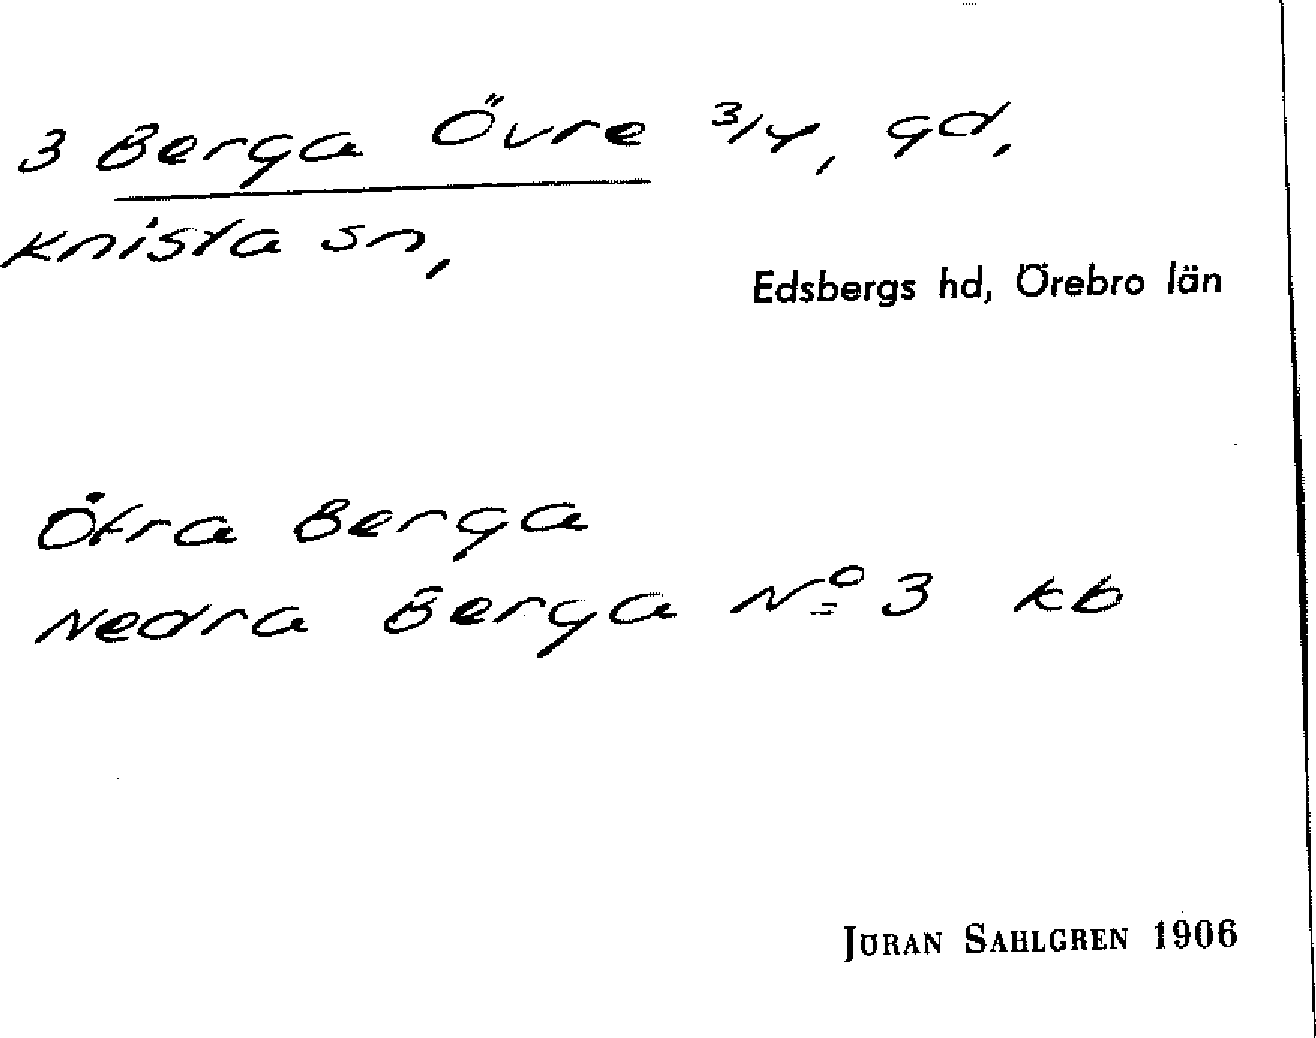 3 Berga Övre 3/4, gd.
Knista sn,
Edsbergs hd, Örebro län
Öfra Berga
Nedra Berga No 3 kb
JÖRAN SAHLGREN 1906